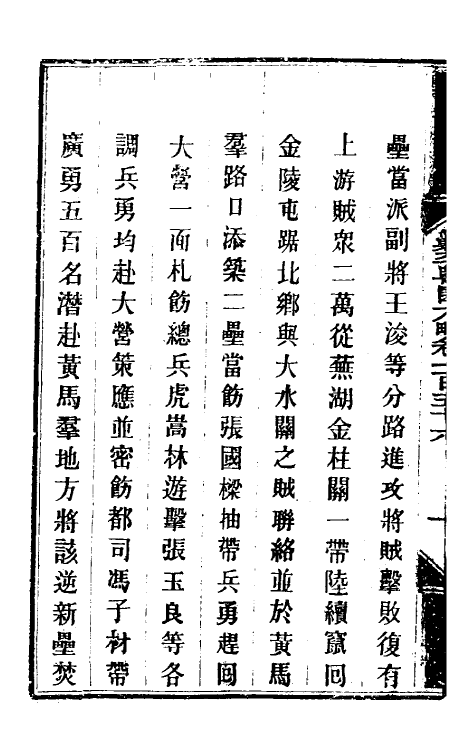 壘當派副將王浚等分路進攻將賊擊敗復有
上游賊衆二萬從蕪湖金柱關一帶陸續竄回
金陵屯踞北鄉與大水關之賊聯絡並於黃馬
羣路口添築二壘當飭張國樑抽帶兵勇趕囘
大營一面札飭總兵虎嵩林遊擊張玉良等各
調兵勇均赴大營策應並密飭都司馮子材帶
廣勇五百名潛赴黃馬羣地方將該逆新壘焚